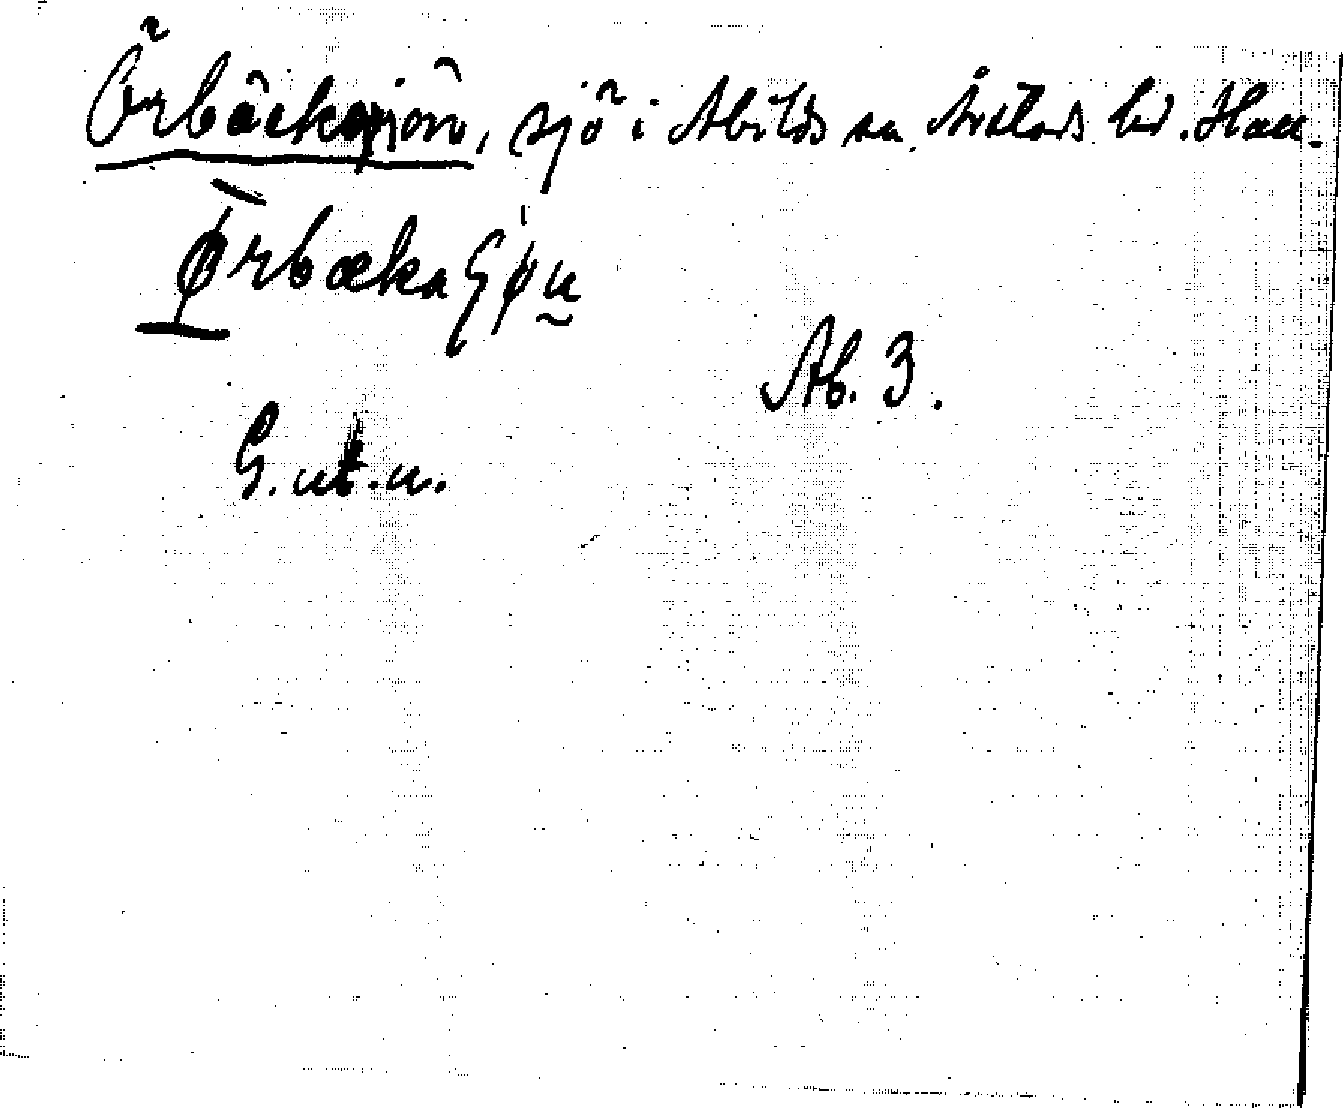 Örbäckasjön, sjö i Abilds sn. Årstads hd. Hall.
Ørbækaʃøn
Ab. 3.
G. ut. u.